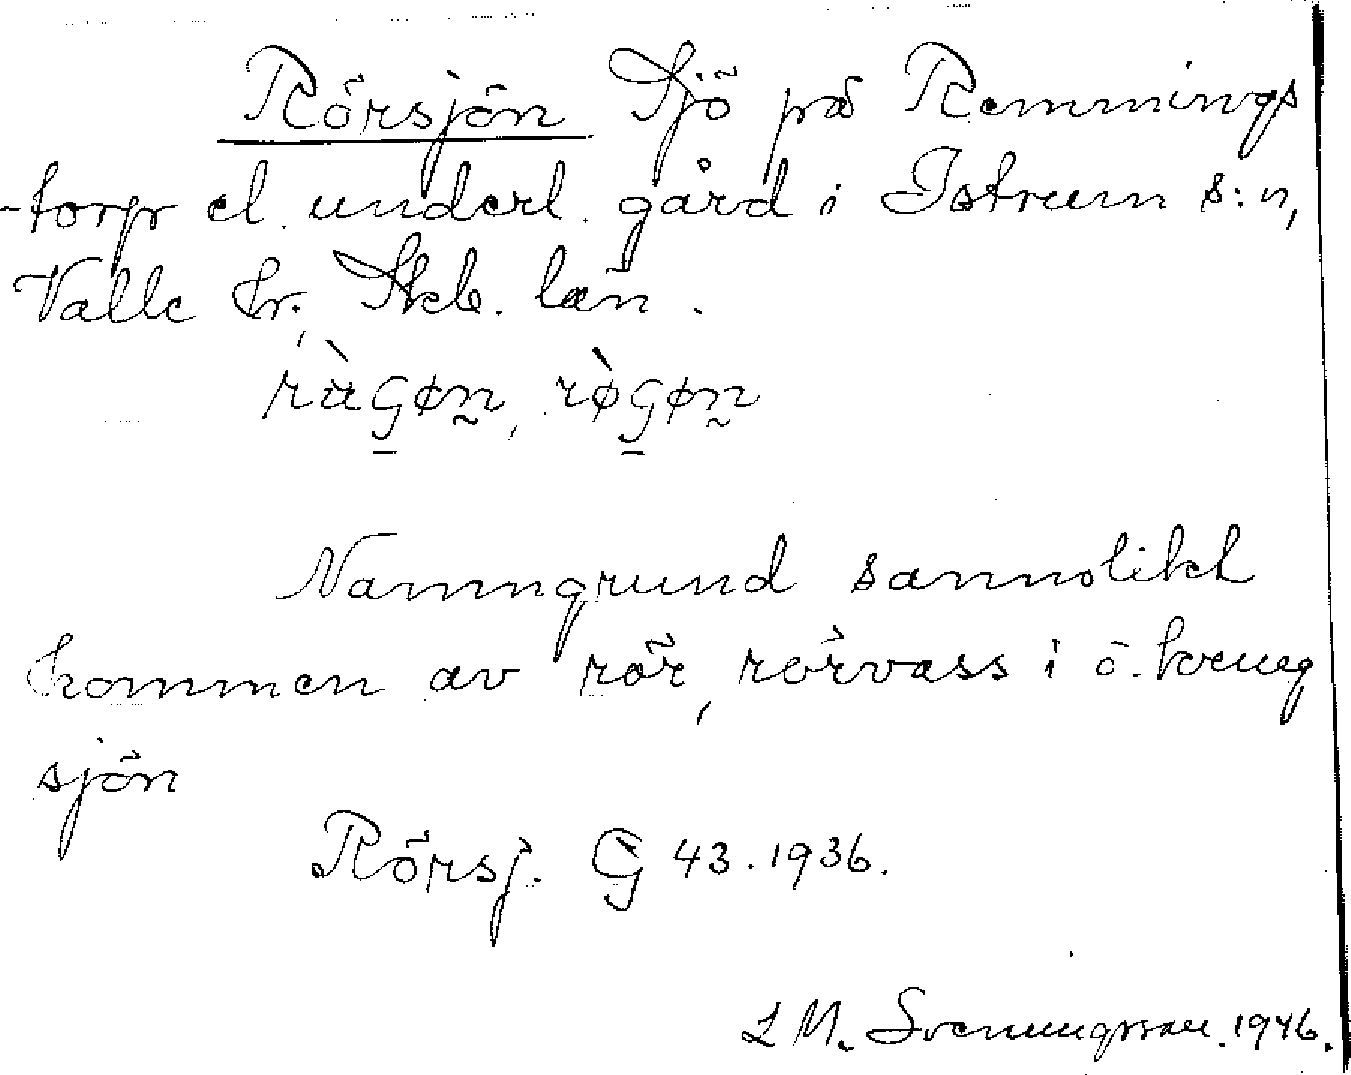 Rörsjön Sjö på Remmings
-torp el. underl. gård i Istrum s:n,
Valle hr, Skb. län.
ràGøn, rø̀Gøn
Namngrund sannolikt
kommen av rör, rörvass i o. kring
sjön
Rörsj. G 43. 1936.
L M. Svenungsson. 1946.